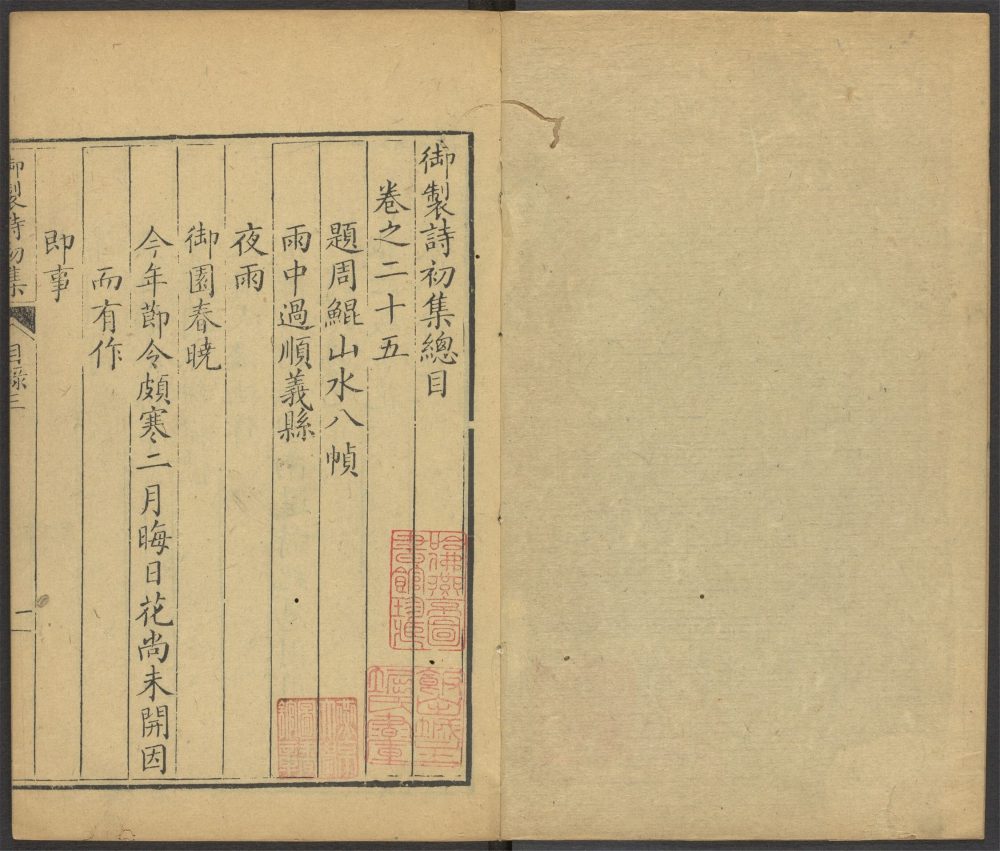 御製詩初集總目
卷之二十五
題周鯤山水八幀
雨中過順義縣
夜雨
御園春曉
今年節令頗寒二月晦日花尚未開因
而有作
即事
御製詩初集
目録三
一
哈佛燕京圖
書館珍藏